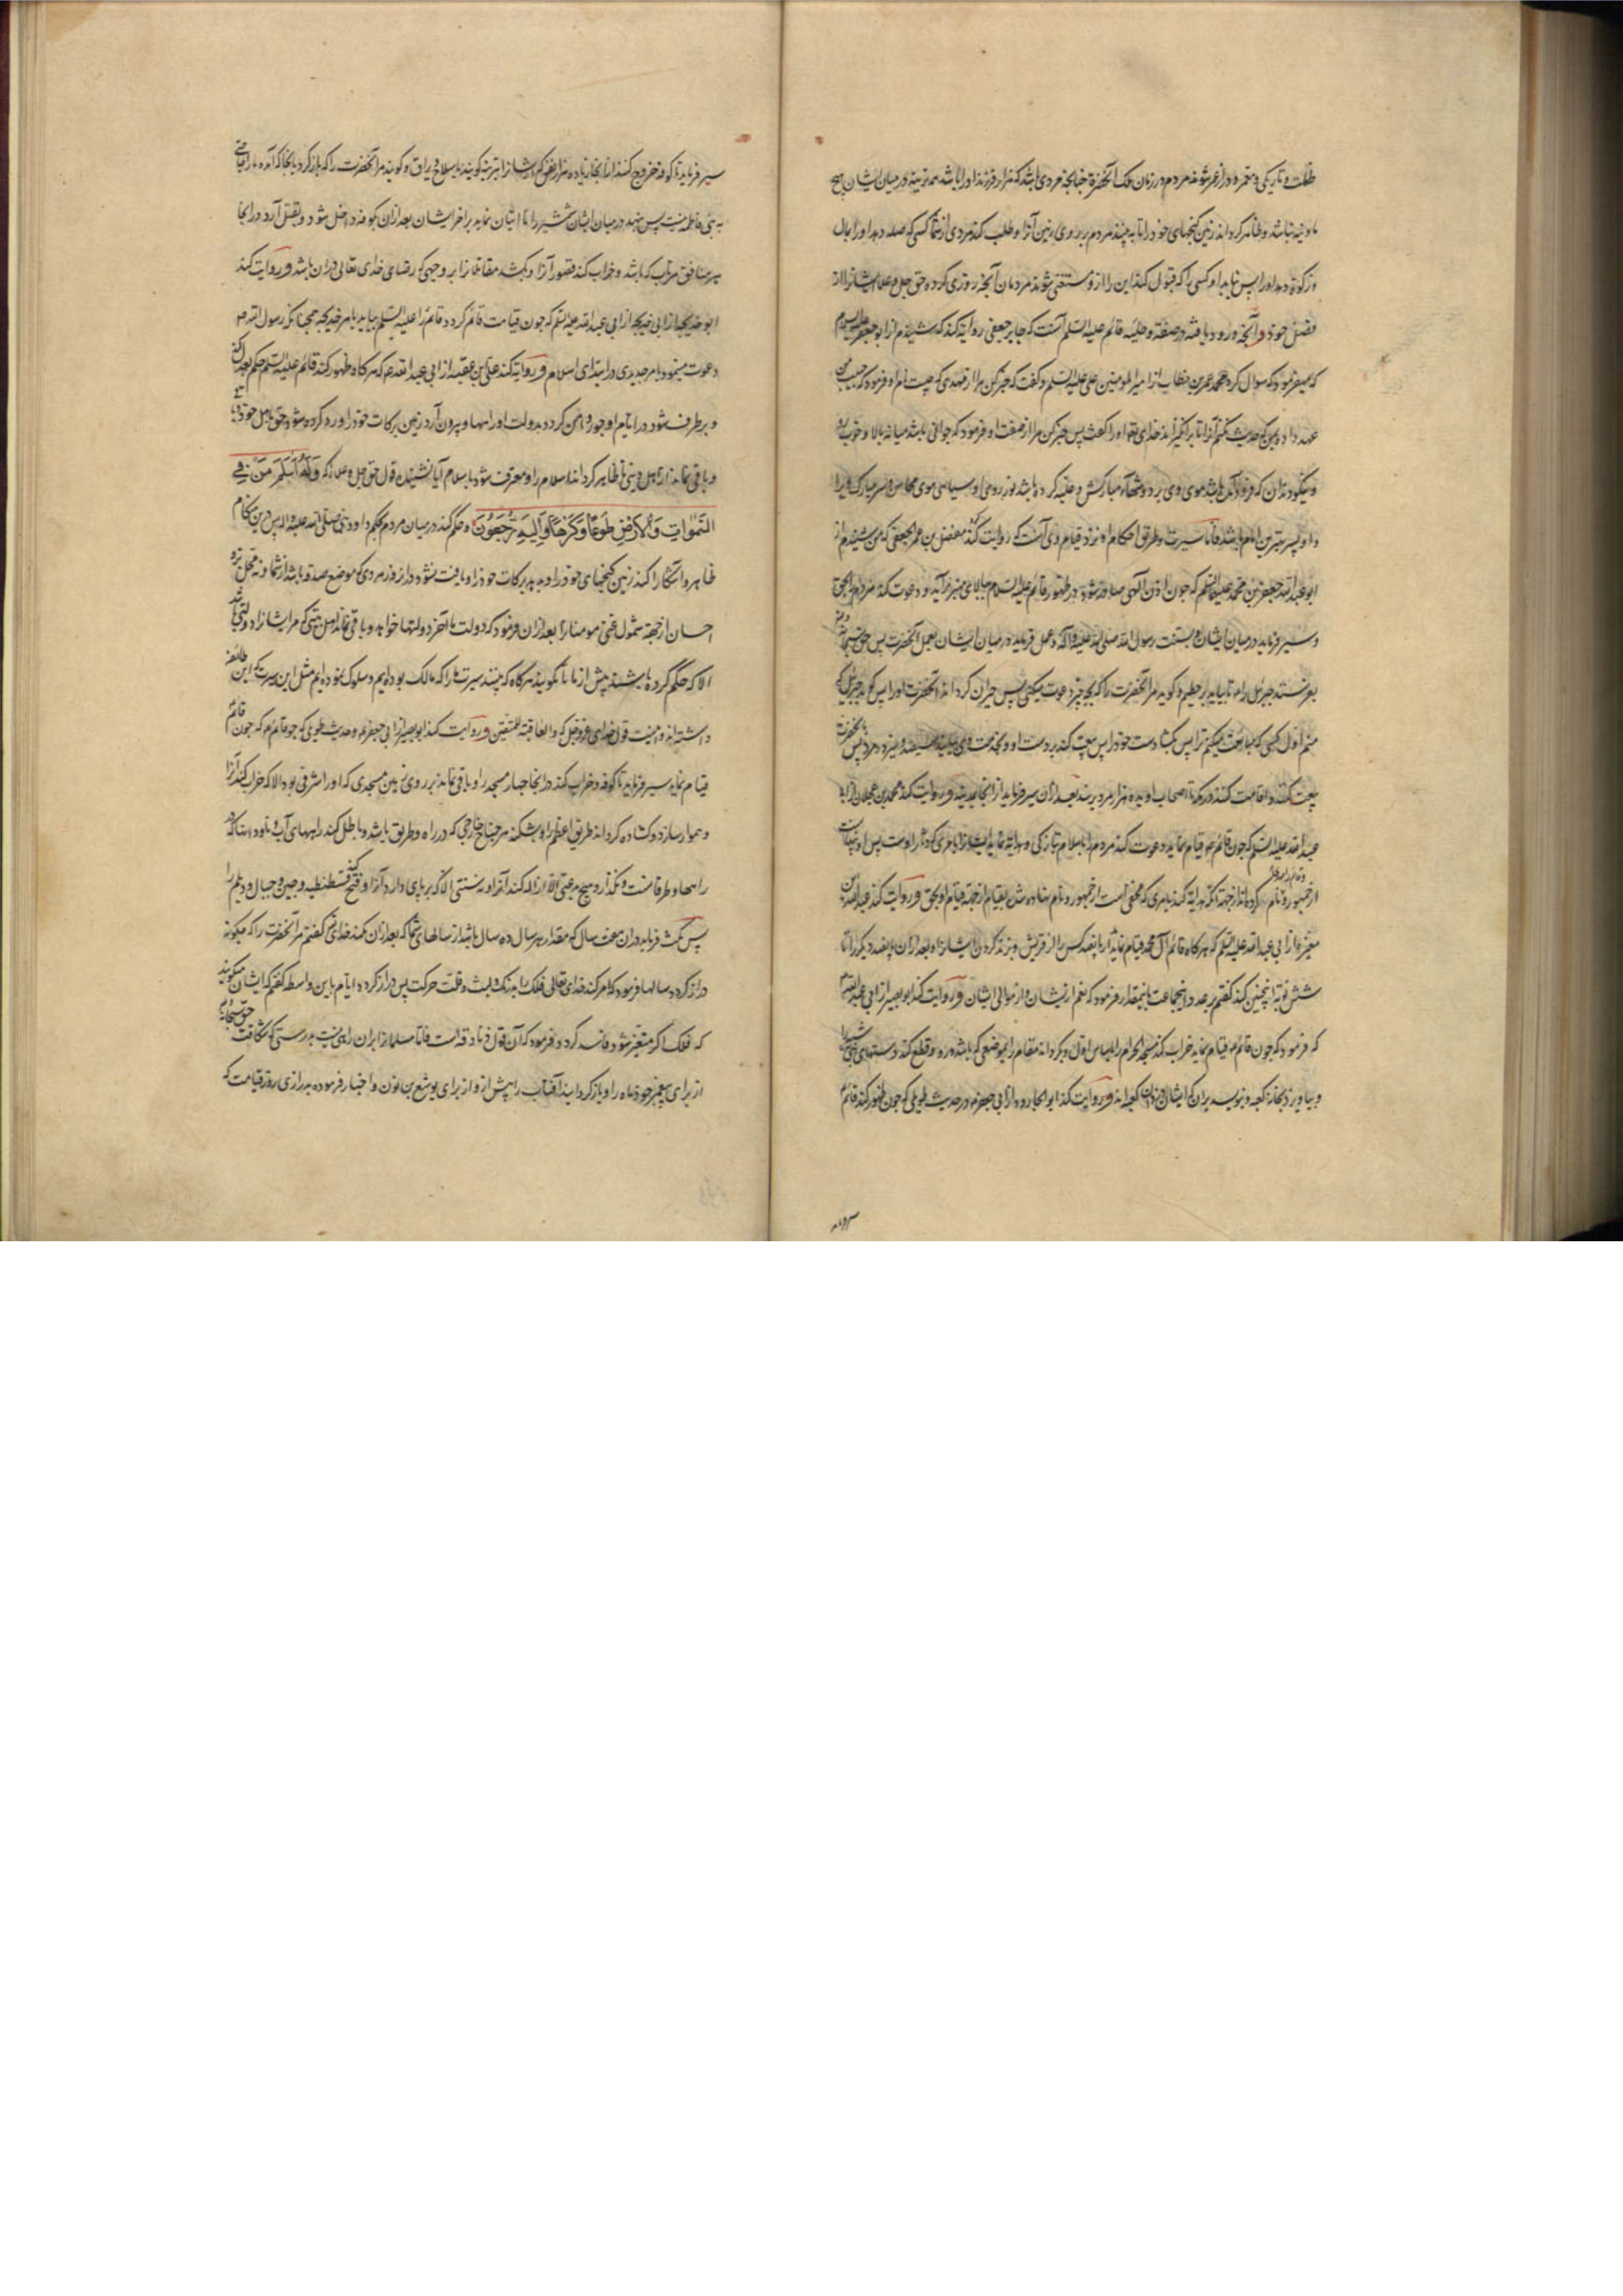 ظلمت و تاریکی و معمره و دراز عمر شوند مردم در زمان ملک آنحضرة چنانچه مردی باشد که هزار فرزند او را باشد همه نرینه و در میان ایشان هیچ
مادینه نباشد و ظاهر کرداند زمین کنجهای خود را تا به بینند مردم بر روی زمین آنرا و طلب کند مردی از شما کسی که صله دهد او را بمال
و زکوة دهد او را پس نیابد او کسی را که قبول کند این را از و مستغنی شوند مردمان آنچه روزی کرده حق جل و علا ایشانرا از
فضل خود و آنچه ورود یافته در صفة و حلیه قائم علیه السلم آنست که جابر جعفی روایة کند که شنیدم از ابو جعفر علیه السلام
که میفرمود که سوال کرد عمر بن خطاب از امیر المومنین علی علیه السلم و کفت که خبر کن مرا از مهدی که چیست نام او فرمود که حبیب من
عهد داده بمن که حدیث نکنم آنرا تا برانکیزاند خدای تعالی او را کفت پس خبر کن مرا از صفت او فرمود که جوانی باشد میانه بالا و خوب رو
و نیکو دندان که فرود آمده باشد موی وی بر دوشهاء مبارکش و غلبه کرده باشد نور روی او سیاهی موی محاسن و سر مبارک ویرا
و او پسر بهترین امام باشد فاما سیرت و طریق احکام او نزد قیام وی آنست که روایت کند مفضل بن عمر الجعفی که من شنیدم از
ابو عبد الله جعفر بن محمد علیه السلم که چون اذن الهی صادر شود در ظهور قائم علیه السلام ببالای منبر بر آید و دعوت کند مردم را بحق
و سیر فرماید در میان ایشان بسنت رسول الله صلی الله علیه و آله و عمل فرماید در میان ایشان بعمل آنحضرت پس حق سبحانه
بفرستد جبرئیل را ع تا بیاید بر حطیم و کوید مر آنحضرت را که بچه چیز دعوت میکنی پس خبر آن کرداند آنحضرت او را پس کوید جبرئیل که
منم اول کسی که مبایعت میکنم ترا پس بکشا دست خود را پس بیعت کند بر دست او و بخدمت وی بیایند سیصد و سیزده مرد پس
بیعت کنند و اقامت کنند در مکه تا اصحاب او بده هزار مرد برسند بعد از آن سیر فرماید از آنجا بمدینه و روایت کند محمد بن عجلان از ابا
عبد الله علیه السلم که چون قائم ع قیام نماید دعوت کند مردم را باسلام بتازکی و هدایة نماید ایشانرا بامری که دثار اوست پس او
از جمهور و نام کرده اند از جهة آنکه هدایة کند بامری که مخفی است از جمهور و نام نهاده شد بقیام از جهة قیام او بحق و روایت کند عبد الله بن
مغیره از ابی عبد الله علیه السلم که هر کاه قائم آل محمد قیام نماید پانصد کس را از قریش و بزند کردن ایشانرا و بعد از آن پانصد دیکر را تا
شش نوبة اینچنین کند کفتم بر عدد اینجماعت باینمقدار فرمود که نعم از ایشان و از موالی ایشان و روایت کند ابو بصیر از ابی عبد الله
که فرمود که چون قائم ع قیام نماید خراب کند مسجد الحرام را باساس اول و بکرداند مقام را بموضعی که باشد درو و قطع کند دستهای بنی شیبه را
و بیاویزد بخانه کعبه و بنویسد بران که ایشان دزدان کعبه اند و روایت کند ابو الجارود از ابی جعفر ع در حدیث طویلی که چون ظهور کند قائم
سیر فرماید بکوفه و خروج کنند از آنجا زیاده هزار نفر که ایشانرا بتریه کویند با سلاح و یراق و کویند مر آنحضرت را که باز کرد بآنجا که آمدهٔ ما را حاجتی
به بنی فاطمه نیست پس بنهد در میان ایشان شمشیر را تا اتیان نماید بر آخر ایشان بعد از آن بکوفه داخل شود و بقتل آرد در آنجا
هر منافق مرتاب که باشد و خراب کند قصور آنرا و بکشد مقاتلانرا بر وجهی که رضای خدای تعالی در آن باشد و روایت کند
ابو خدیجه از ابی عبد الله علیه السلم که چون قیامت قائم کردد قائم را علیه السلم بیاید بامر جدید همچنانکه رسول الله ص
دعوت مینمود بامر جدیدی در ابتدای اسلام و روایة کند علی بن عقبه از ابی عبد الله ع که هر کاه ظهور کند قائم علیه السلم حکم بعدل کند
و بر طرف شود در ایام او جور و ایمن کردد بدولت او راهها و بیرون آرد زمین برکات خود را و رد کرده شود حق باهل خود
و باقی نماند از اهل دینی تا ظاهر کرداند اسلام را و معترف شود باسلام آیا نشنیدهٔ قول حق جل و علا را که وَلَهُ اَسْلَمَ مَنْ فِی
السَّمٰوَاتِ وَالْاَرْضِ طَوْعًا وَّکَرْهًا وَّاِلَیْهِ تُرْجَعُوْنَ و حکم کند در میان مردم بحکم داود و نبی صلی الله علیه و اله پس درین هنکام
ظاهر و آشکارا کند زمین کنجهای خود را و بدید برکات خود را و یافت نشود دران روز مردی که موضع صدقه باشد از شما و نه محل برّ و
احسان از جهة شمول غنی مومنانرا بعد از آن فرمود که دولت ما آخر دولتها خواهد و باقی نماند اهل بیتی که مر ایشانرا دولتی باشد
الا که حکم کرده باشند پیش از ما تا نکویند هر کاه که بینند سیرت ما را که مالک بوده ایم و سلوک نموده ایم مثل این سیرت که این طائفه
داشته اند و اینست قول خدای عز و جل که والعاقبة للمتقین و روایت کند ابو بصیر از ابی جعفر ع در حدیث طویلی که چون قائم
قیام نماید سیر فرماید تا کوفه و خراب کند در آنجا چهار مسجد را و باقی نماند بر روی زمین مسجدی که او را شرفی بود الا که خراب کند آنرا
و هموار سازد و کشاده کرداند طریق اعظم را و بشکند هر جناح خارجی که در راه و طریق باشد و باطل کند راههای آب و ناودانها که در
راهها و طرقانست و نکذارد هیچ بدعتی الا ازاله کند آنرا و نه سنتی الا که بر پای دارد آنرا و فتح کند قسطنطنیه و چین و جبال دیلم را
پس مکث فرماید بدان هفت سال که مقدار هر سال ده سال باشد از سالهای شما که بعد از آن بکند خدای کفتم مر آنحضرت را که چکونه
دراز کردد سالها فرمود که امر کند خدای تعالی فلک را بدرنک و لبث و قلت حرکت پس دراز کردد ایام باین واسطه کفتم که ایشان میکویند
که فلک اکر متغیر شود فاسد کردد فرمود که آن قول زنادقه است فاما مسلمانرا بران راهی نیست بدرستی که شکافت حق سبحانه
از برای پیغمبر خود ماه را و باز کردانید آفتاب را پیش از و از برای یوشع بن نون و اخبار فرموده بدرازی روز قیامت که